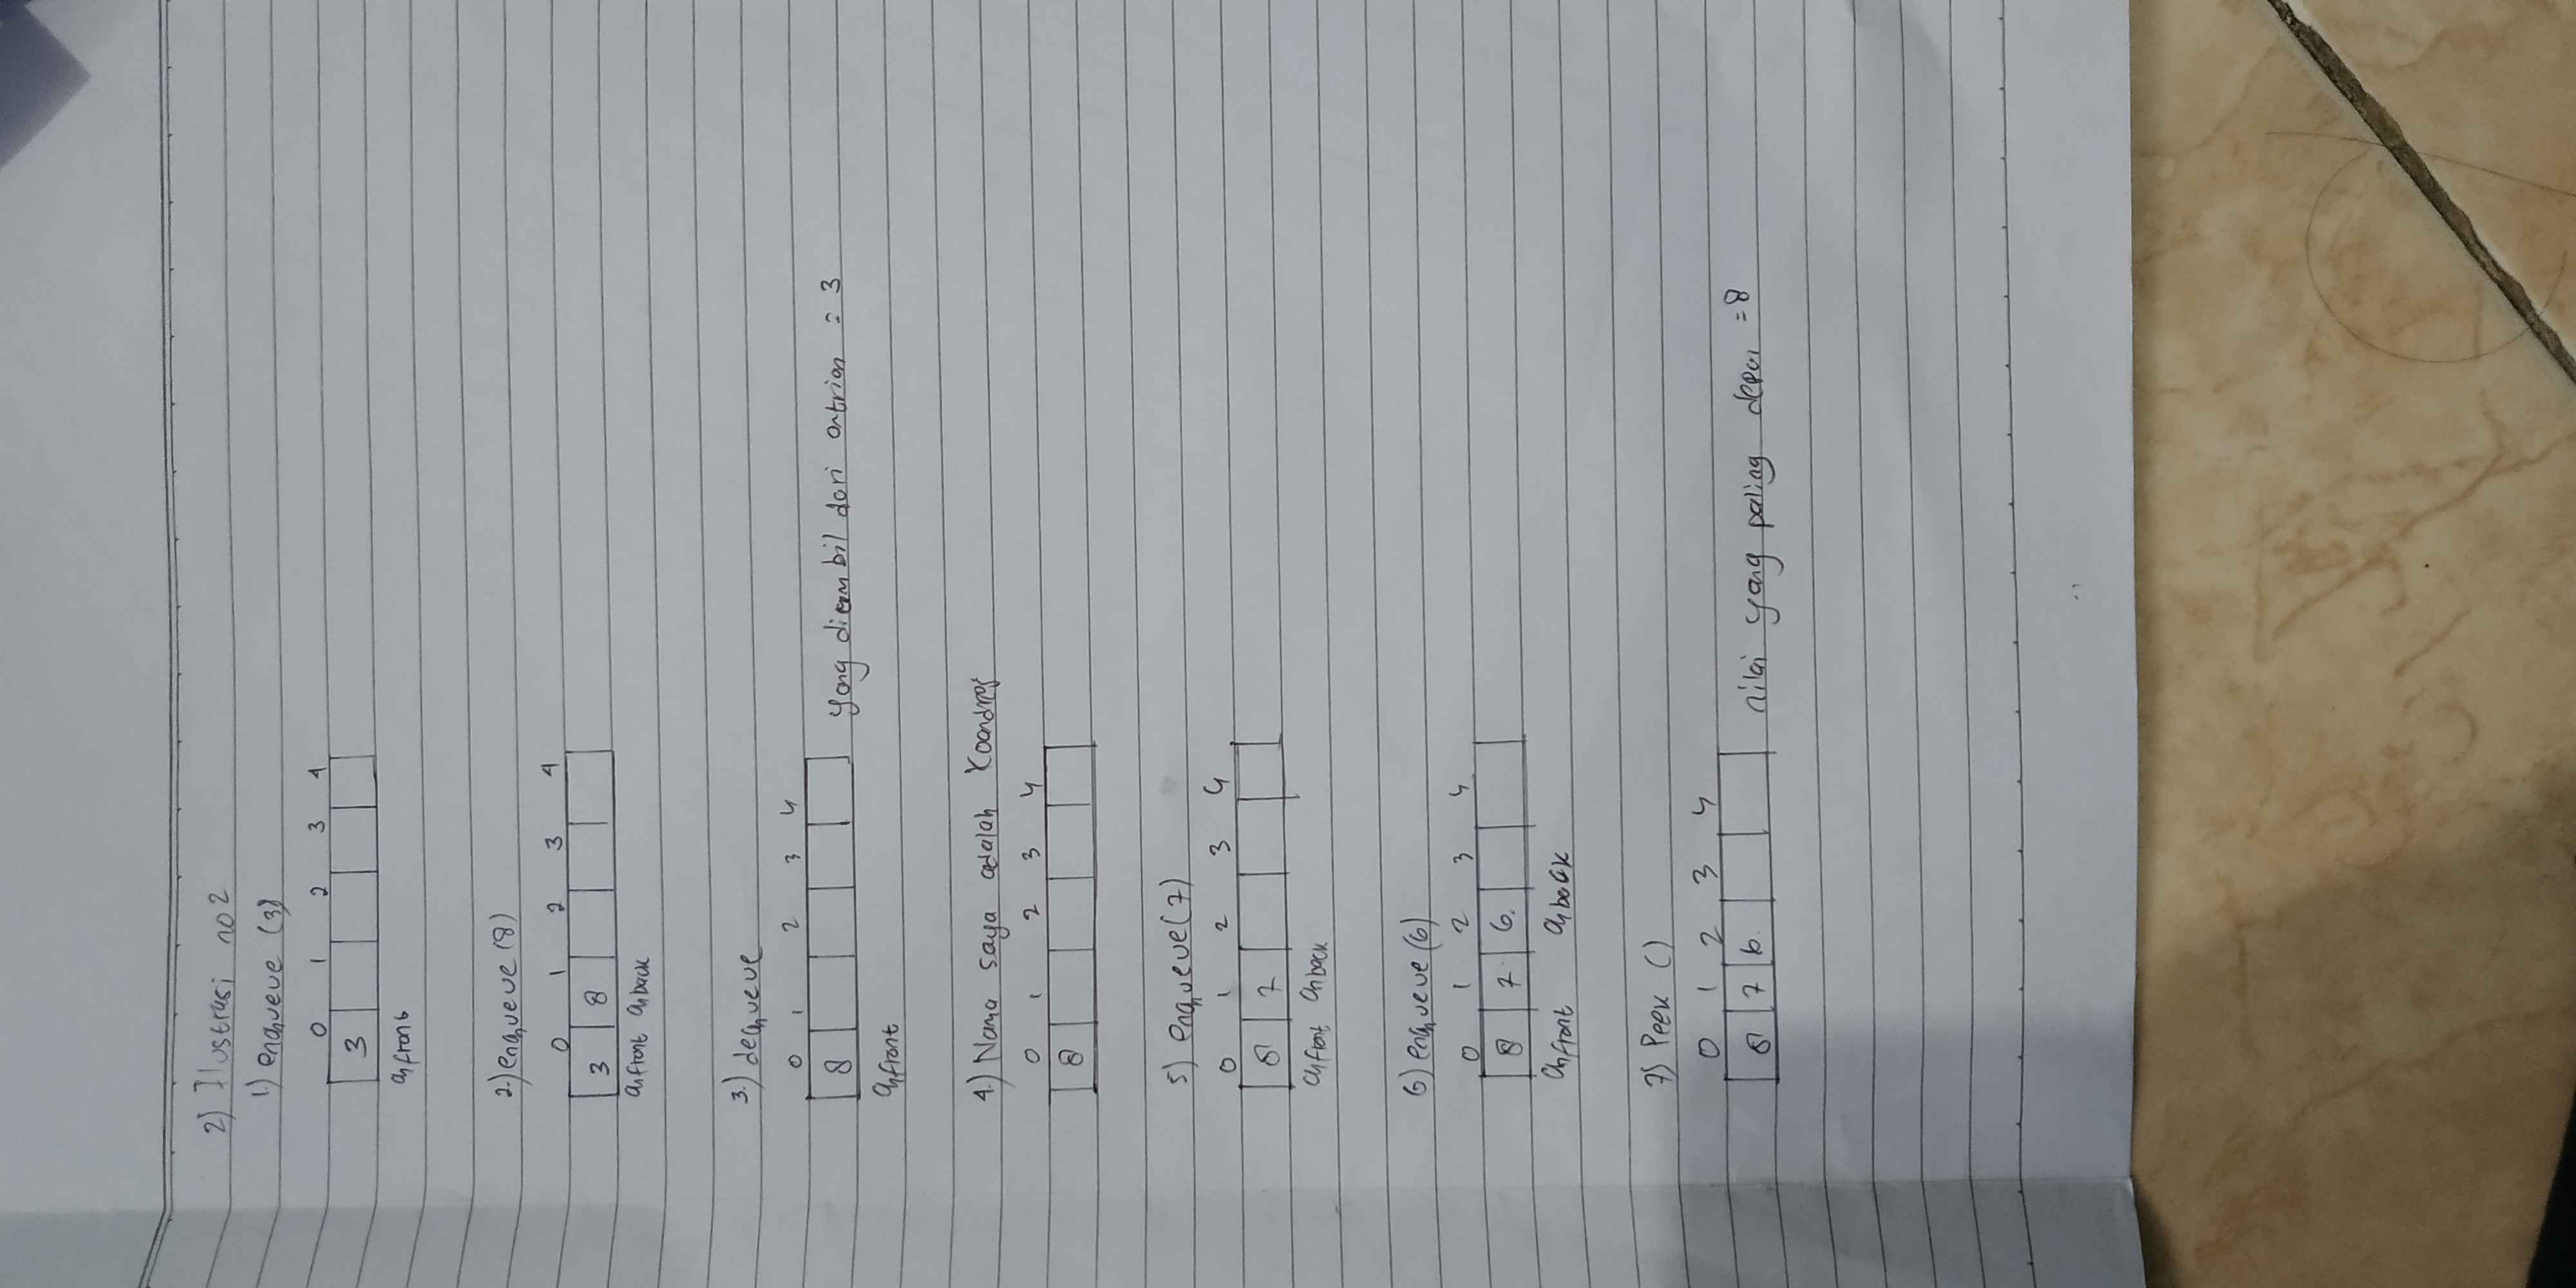 2) Ilustrasi no 2
1) enqueue (3)
0 1 2 3 4
3
qfront
2.) enqueue (8)
0 1 2 3 4
3 8
qfront qback
3.) dequeue
0 1 2 3 4
8 yang diambil dari antrian = 3
qfront
4.) Nama saya adalah
0 1 2 3 4
8
5) enqueue (7)
0 1 2 3 4
8 7
qfront qback
6) enqueue (6)
0 1 2 3 4
8 7 6
qfront qback
7) Peek ()
0 1 2 3 4
8 7 6 nilai yang paling depan = 8